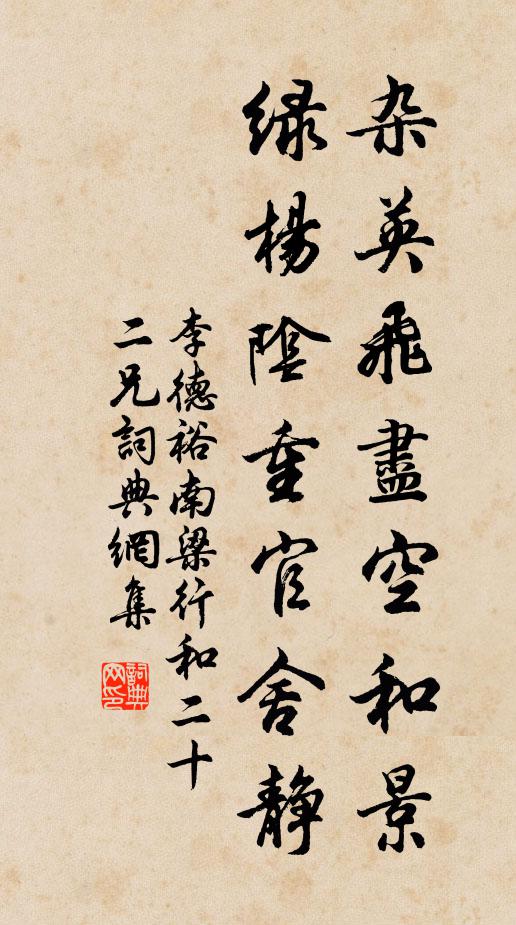 杂英飛盡空和景
緑楊陰重官舍静
李德裕南梁行和二十
二兄詞典網集
詞典
网印